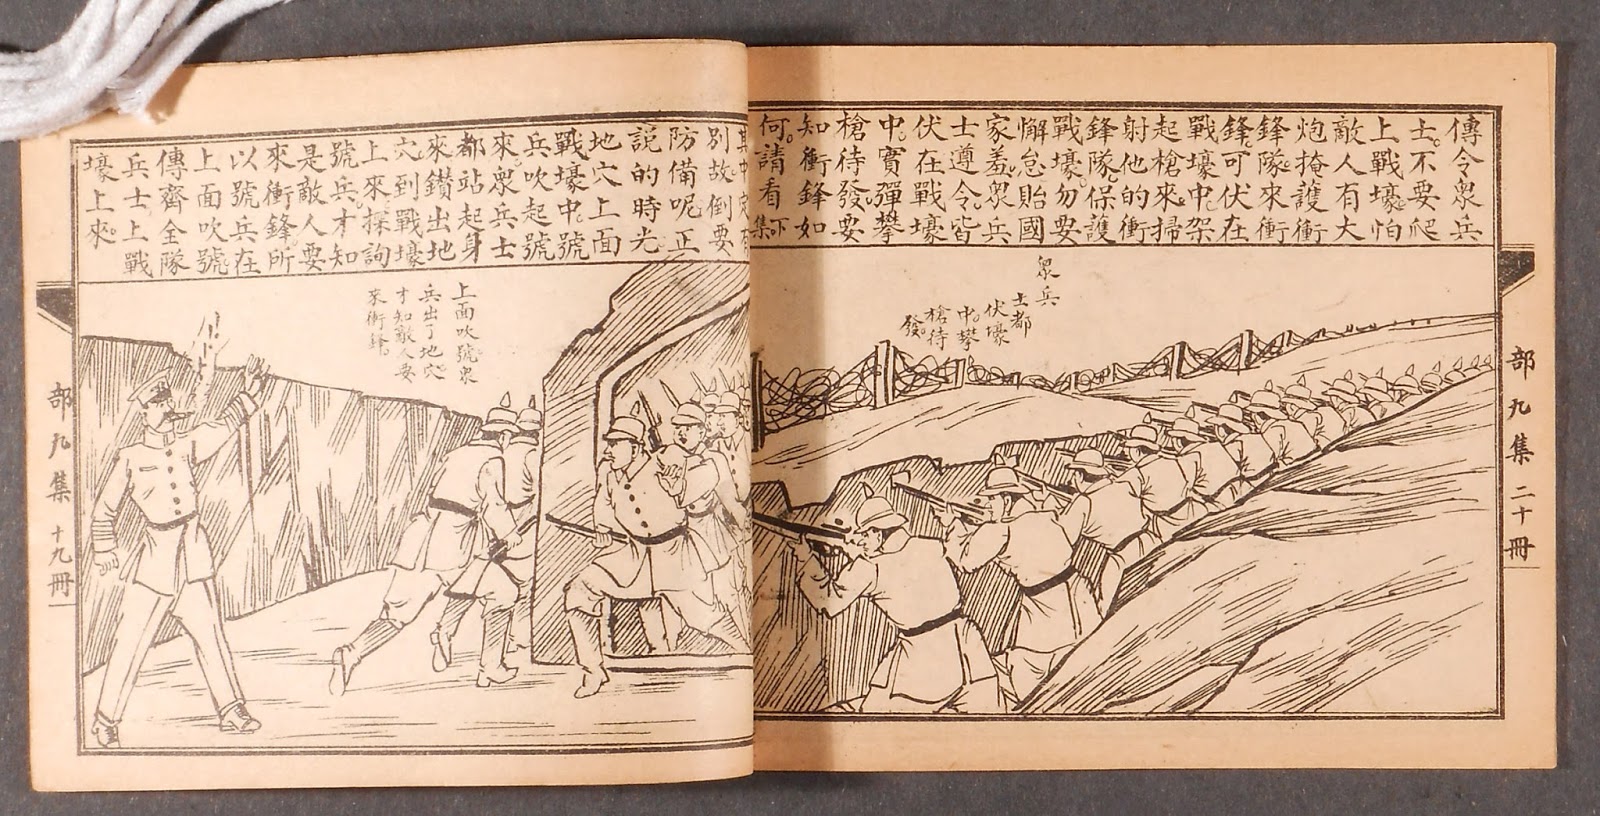 其中定有
別故。倒要
防備呢。正
說的時光。
地穴上面
戰壕中。號
兵吹起號
來。眾兵士
都站起身
來。鑽出地
穴。到戰壕
上來。探詢
號兵。才知
是敵人要
來衝鋒。所
以號兵在
上面吹號。
傳齊全隊
兵士。上戰
壕上來。
上面吹號。眾
兵出了地穴。
才知敵人要
來衝鋒。
部九集 十九冊
傳令眾兵
士。不要爬
上戰壕。怕
敵人有大
炮掩護衝
鋒隊。來衝
鋒。可伏在
戰壕中。架
起槍來。掃
射他的衝
鋒隊。保護
戰壕。勿要
懈怠貽國
家羞。眾兵
士遵令。皆
伏在戰壕
中。實彈攀
槍待發。要
知衝鋒如
何。請看下集
眾兵
士都
伏壕
中。攀
槍待
發。
部九集 二十冊